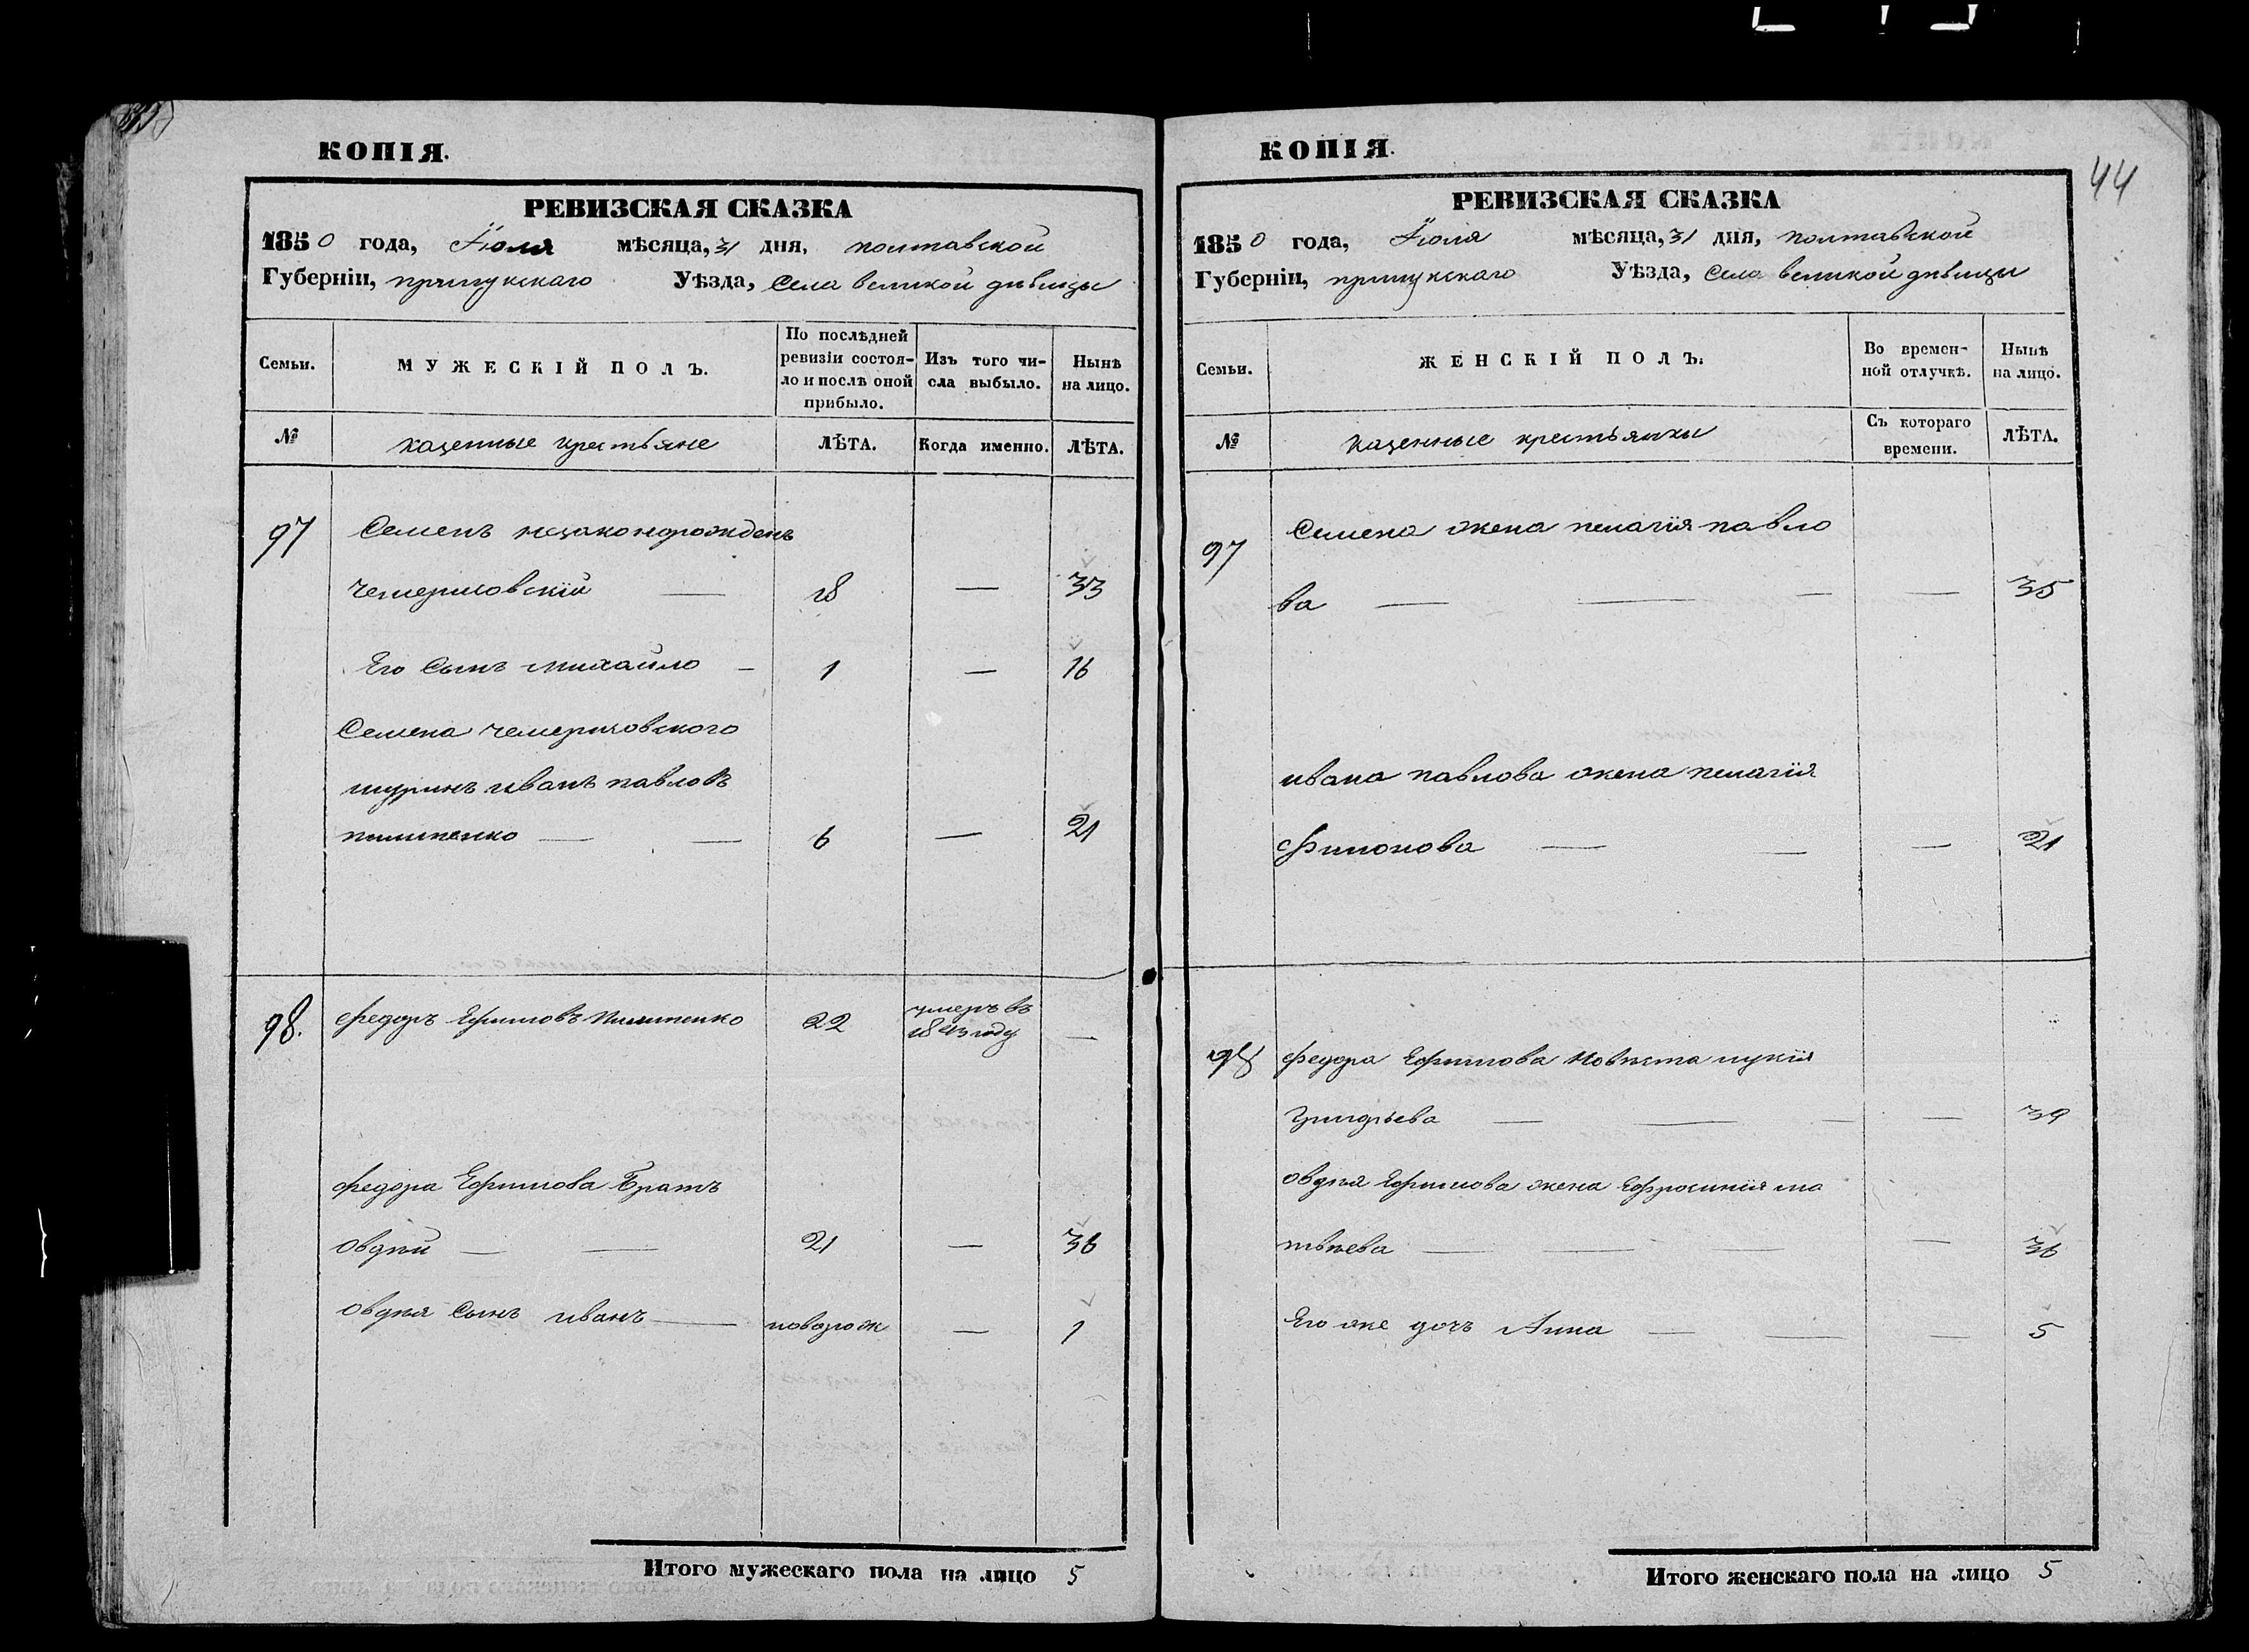 КОПІЯ.
РЕВИЗСКАЯ СКАЗКА
1850 года, Іюля мѣсяца, 31 дня, полтавской
Губерніи, прилукскаго Уѣзда, Села великой дѣвицы
Семьи.
МУЖЕСКІЙ ПОЛЪ.
По послѣдней
ревизіи состоя-
ло и послѣ оной
прибыло.
Изъ того чи-
сла выбыло.
Нынѣ
на лицо.
№
казенные крестьяне
ЛѢТА.
Когда именно.
ЛѢТА.
97 Семенъ незаконорожденъ
Чемерисовскій — 18 — 33
Его Сынъ михайло — 1 — 16
Семена Чемерисовского
шуринъ иванъ павловъ
пилипенко — — 6 — 21
98. федоръ Ефимовъ пилипенко 22 умеръ въ
1843 году —
федора Ефимова Братъ
овдѣй — — 21 — 36
овдѣя Сынъ иванъ — новорож — 1
Итого мужескаго пола на лицо 5
КОПІЯ.
44
РЕВИЗСКАЯ СКАЗКА
1850 года, Іюля мѣсяца, 31 дня, полтавской
Губерніи, прилукскаго Уѣзда, Села великой дѣвицы
Семьи.
ЖЕНСКІЙ ПОЛЪ.
Во времен-
ной отлучкѣ.
Нынѣ
на лицо.
№
казенные крестьянки
Съ котораго
времени.
ЛѢТА.
97 Семена жена пелагія павло
ва — — — — 35
ивана павлова жена пелагія
филонова — — — 21
98 федора Ефимова невѣста лукія
Григорьева — — — — 39
овдѣя Ефимова жена Ефросинія ма
твѣева — — — — 36
Его же дочь Анна — — — 5
Итого женскаго пола на лицо 5